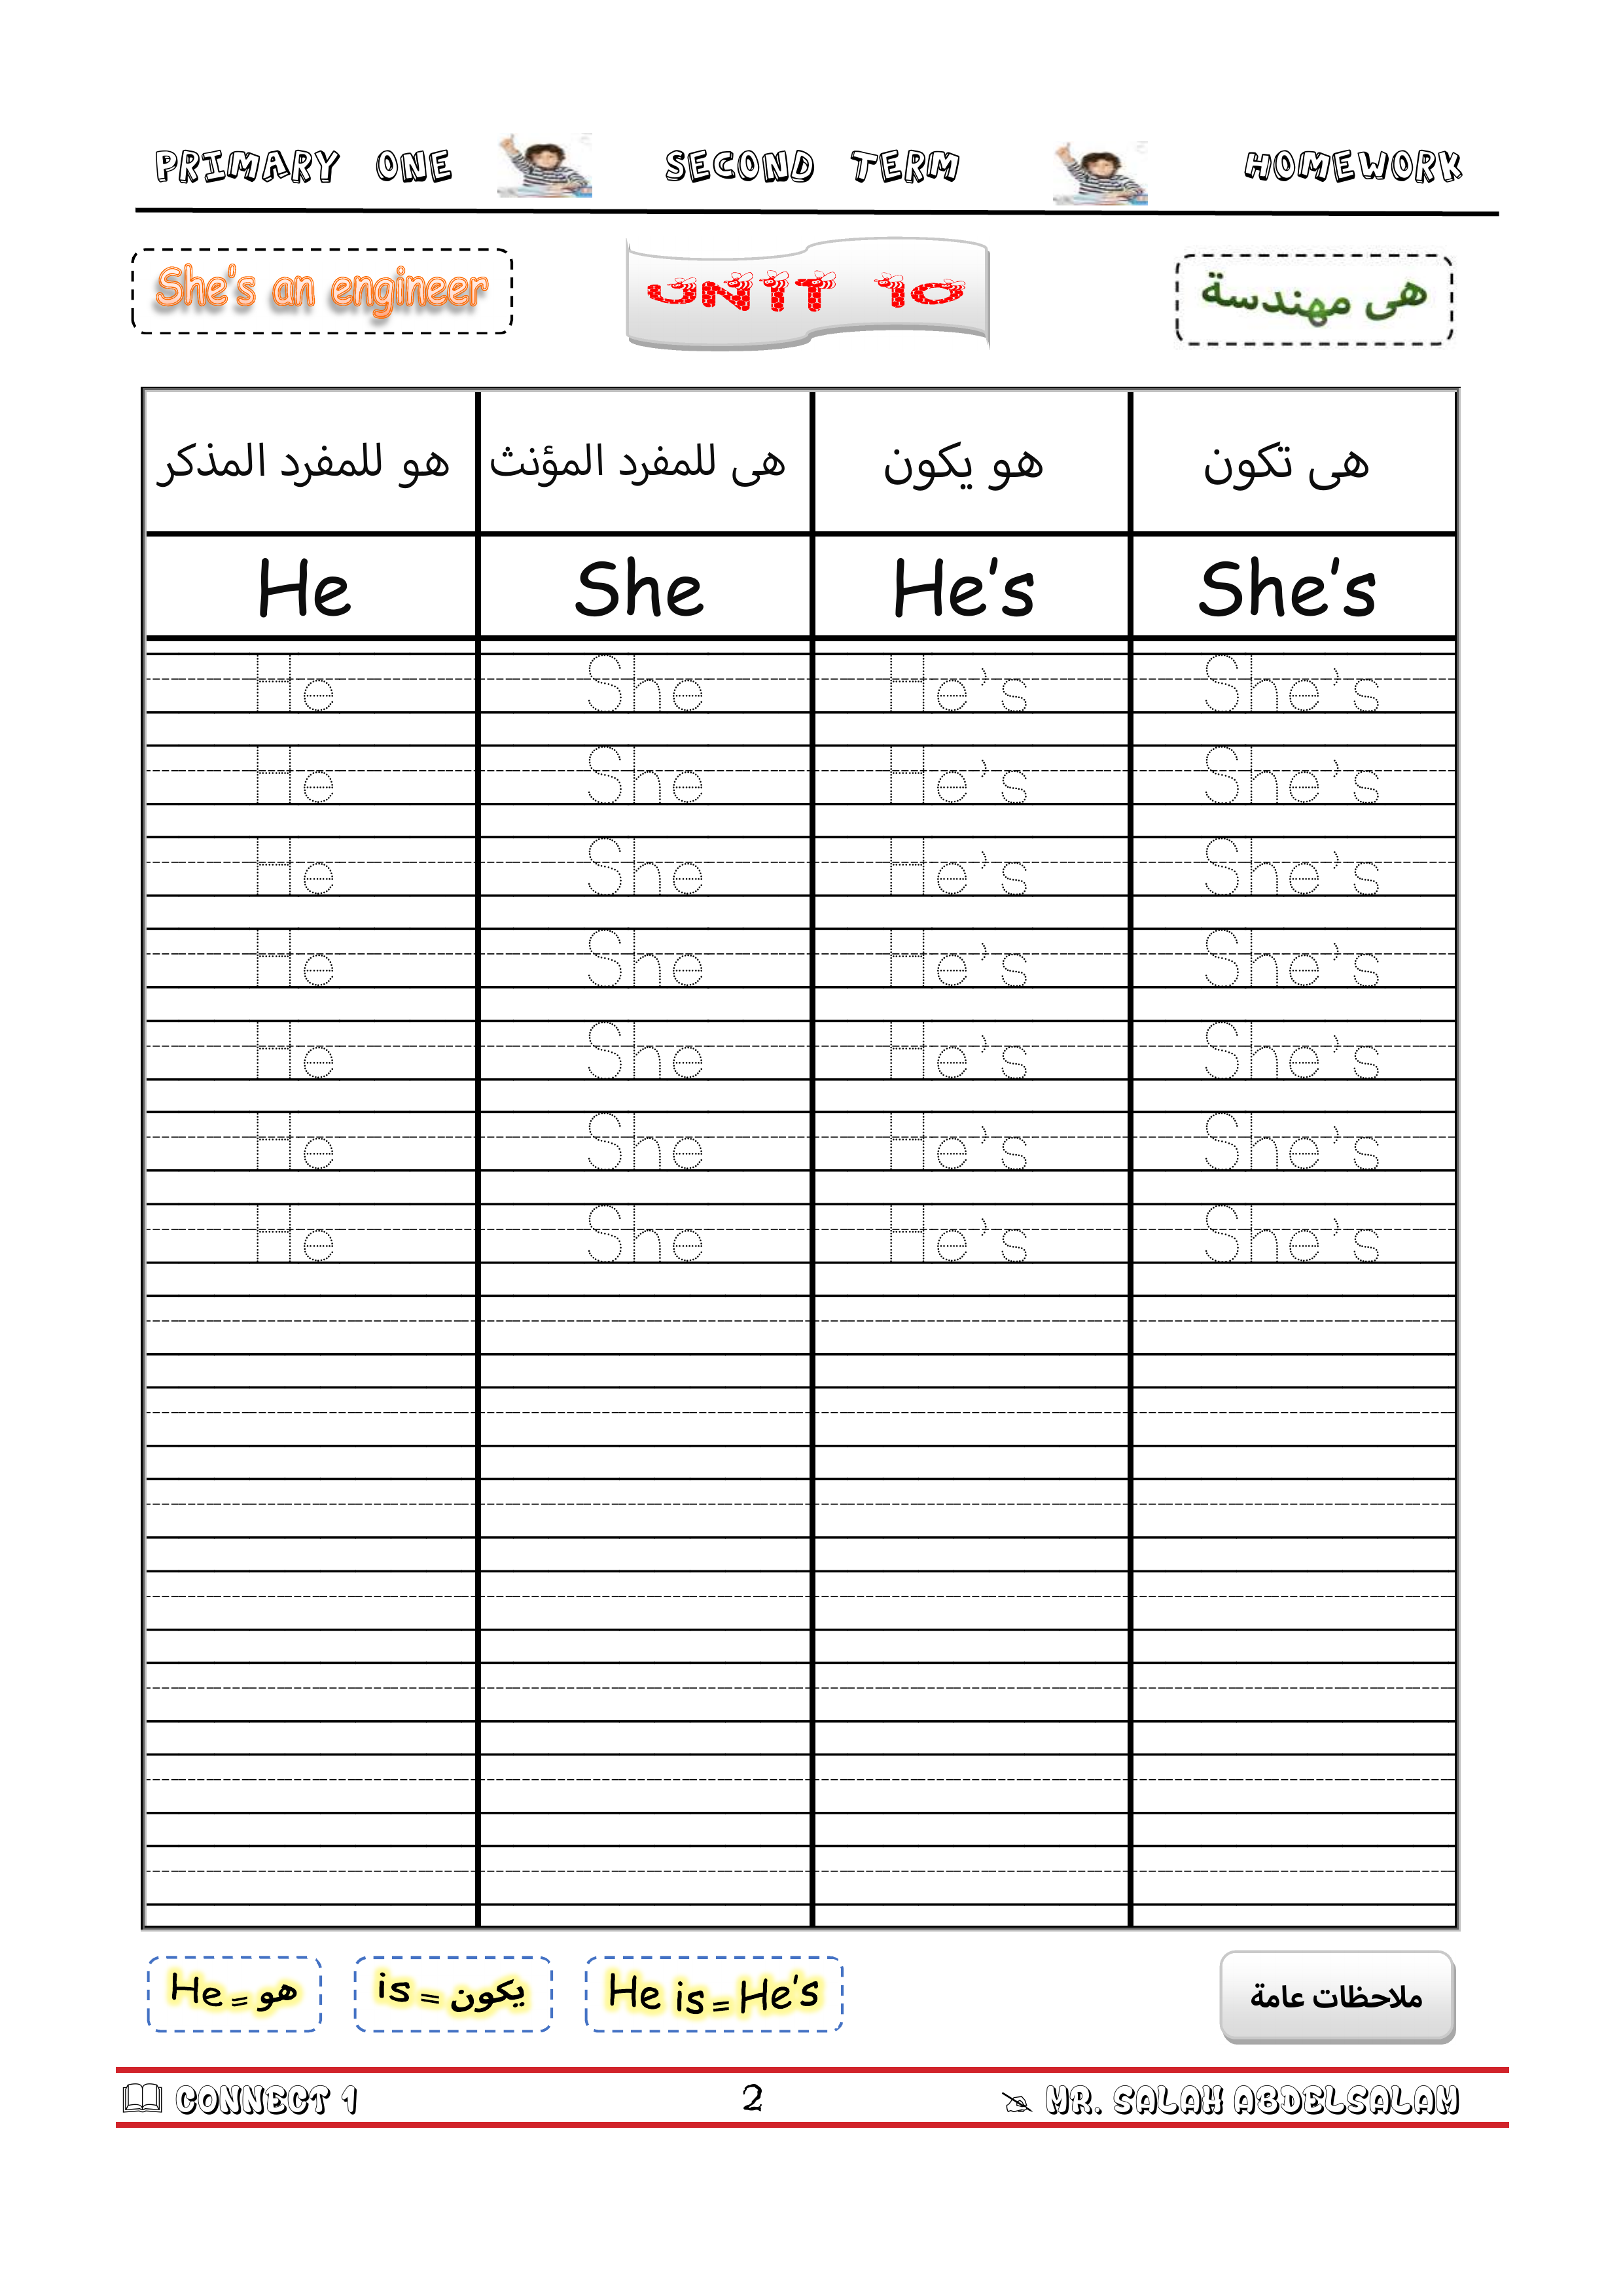 PRIMARY ONE SECOND TERM HOMEWORK
She's an engineer UNIT 10 هى مهندسة
هو للمفرد المذكر هى للمفرد المؤنث هو يكون هى تكون
He She He's She's
He She He's She's
He She He's She's
He She He's She's
He She He's She's
He She He's She's
He She He's She's
He She He's She's
He = هو is = يكون He is = He's ملاحظات عامة
CONNECT 1 2 MR. SALAH ABDELSALAM